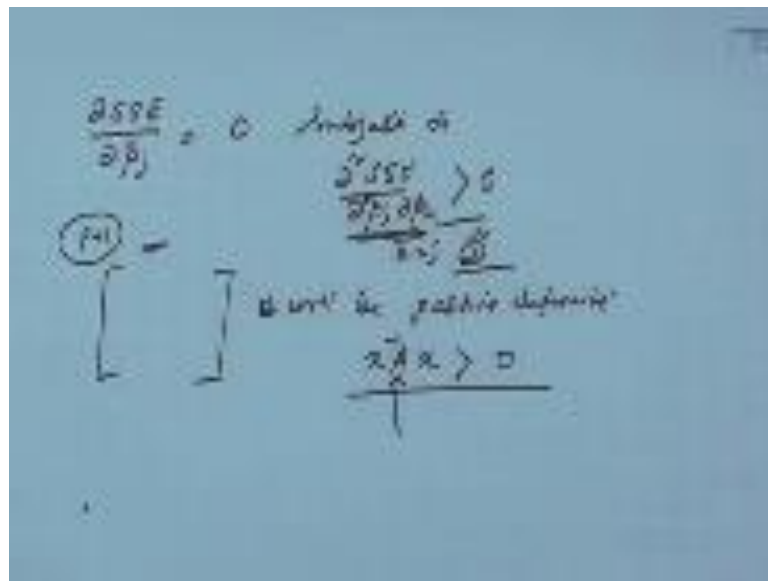 ∂SSE/∂β_j = 0
∂²SSE/∂β_j ∂β_k > 0
k = j
p+1
will be positive definite
xᵀAx > 0